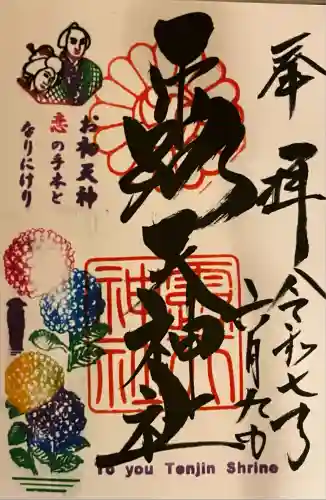 奉拝
令和七年
六月九日
露天神社
お初天神
恋の手本と
なりにけり
露天神社
To you Tenjin Shrine